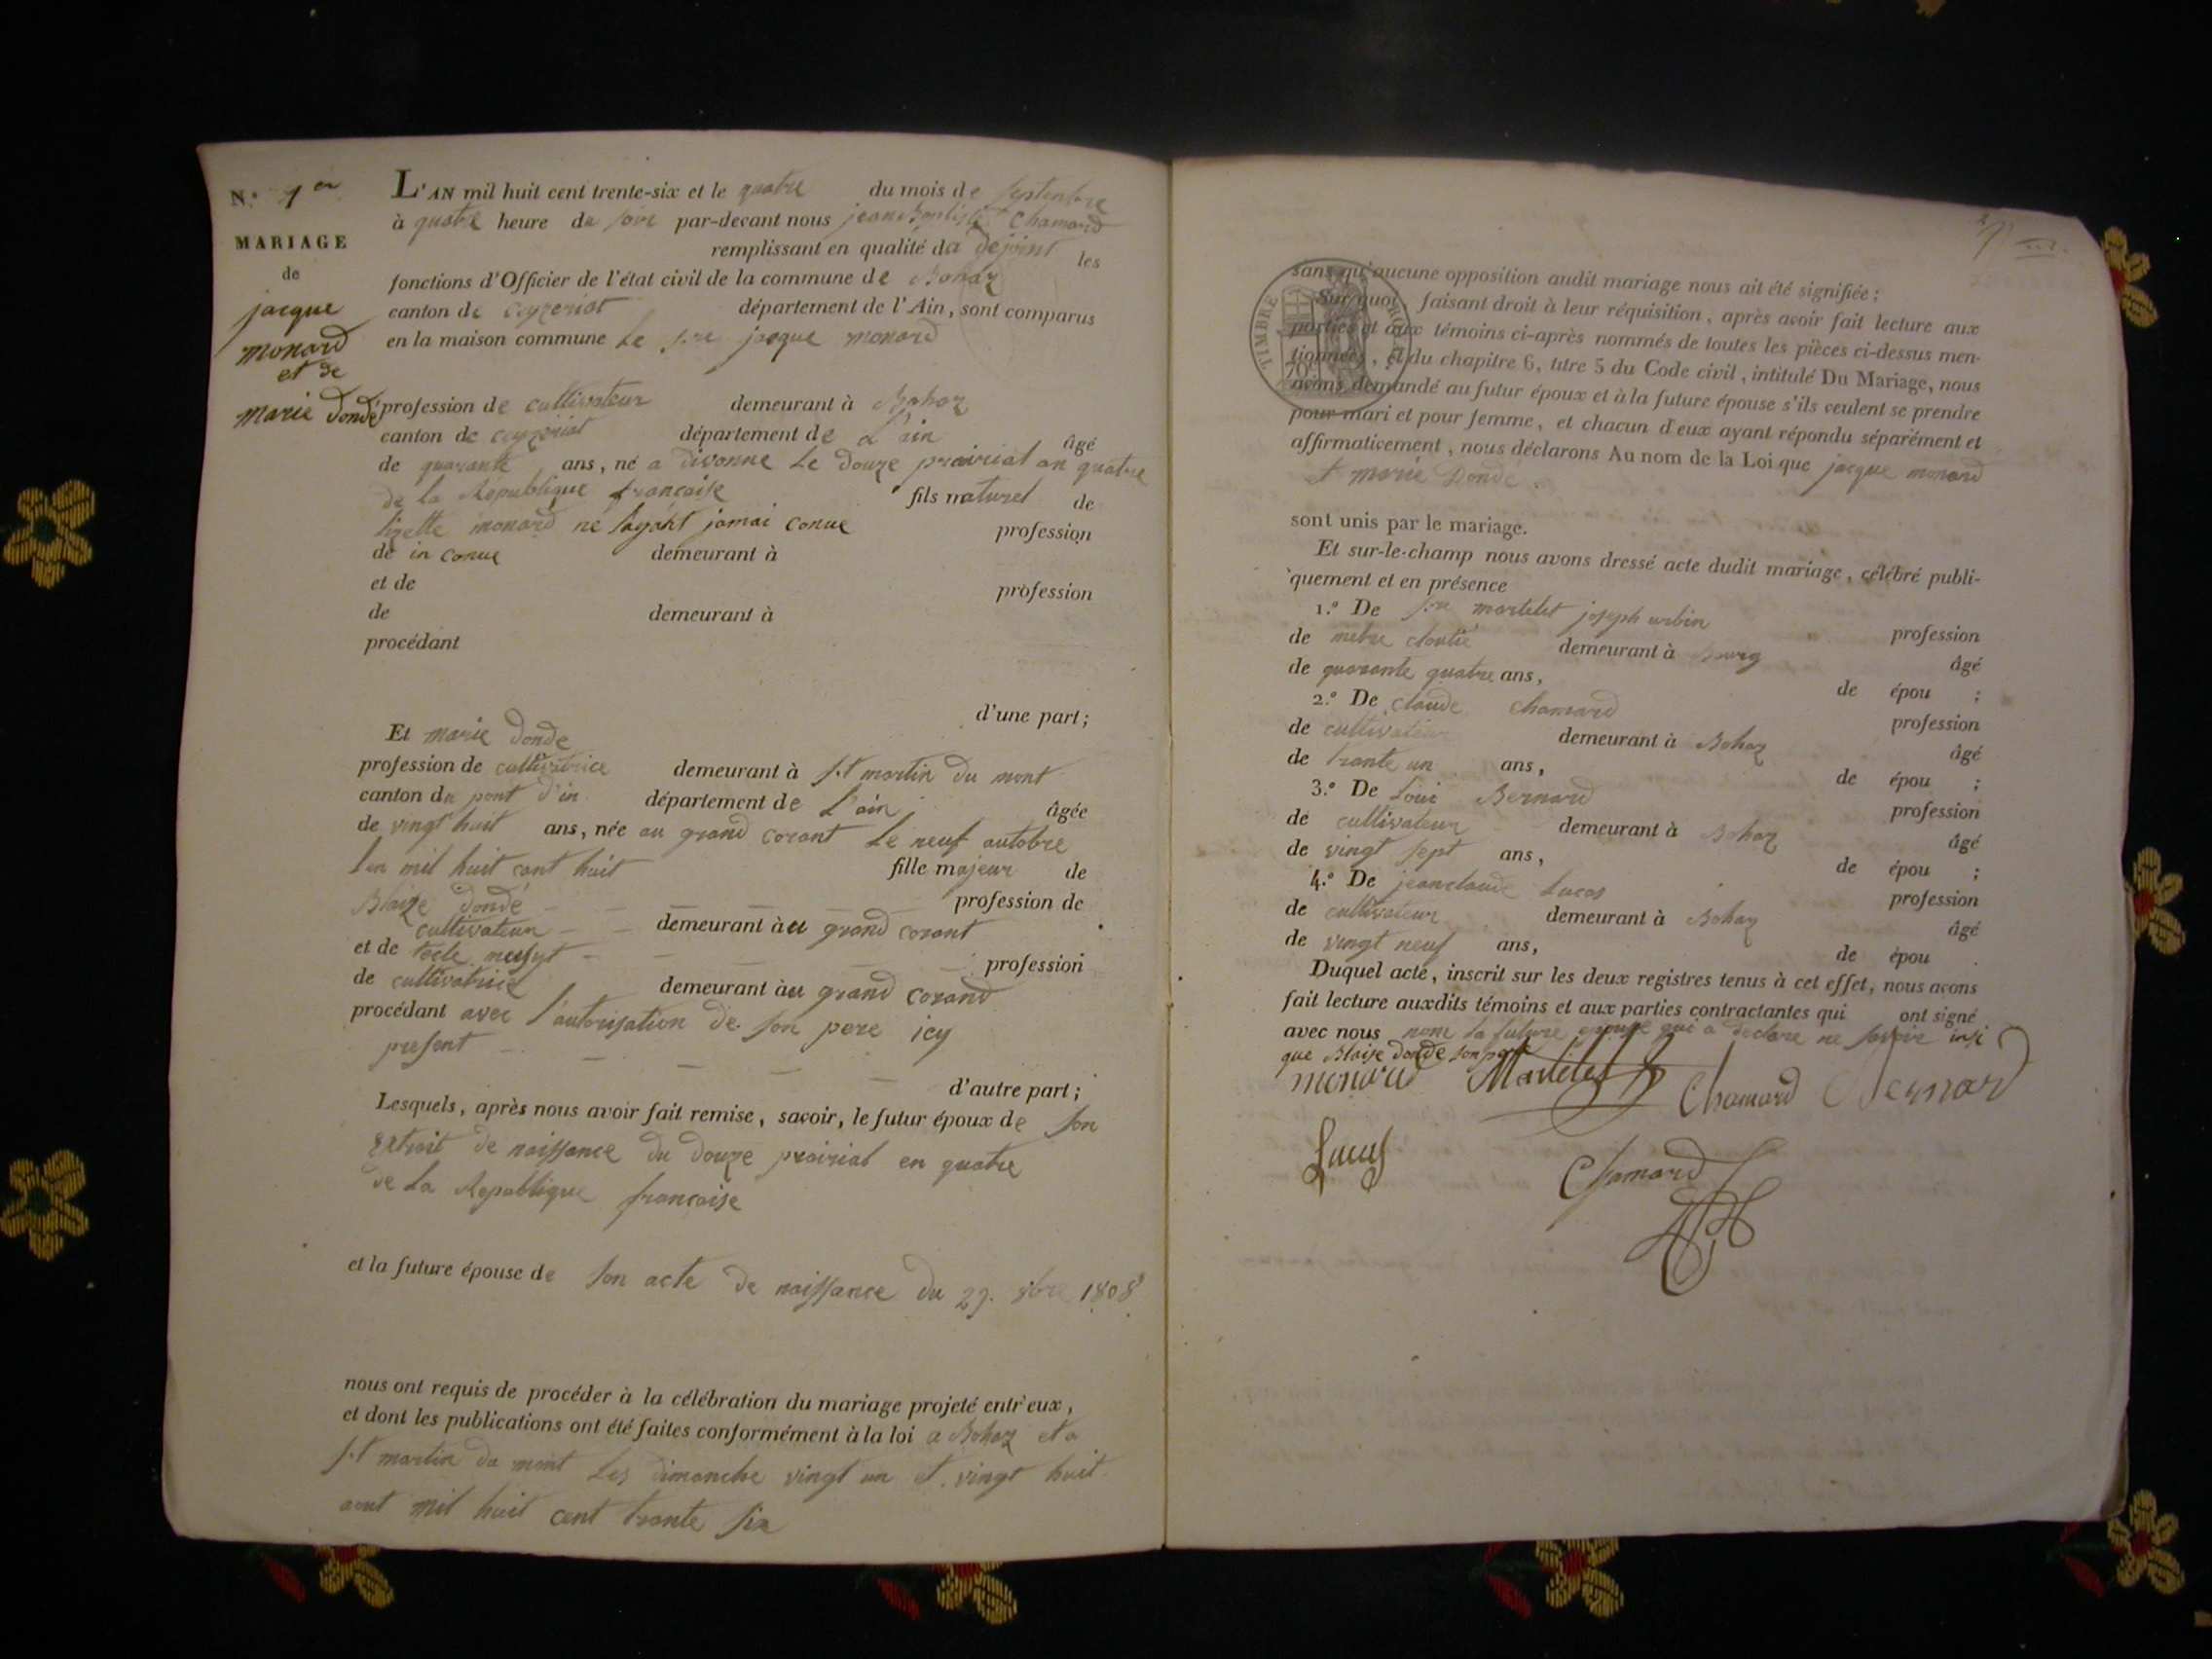 N.° 1er
MARIAGE
de
jacque
monard
et de
marie dondé
L'AN mil huit cent trente-six et le quatre du mois de septenbre
à quatre heure du soire par-devant nous jean Baptiste Chamard
remplissant en qualité da dejoint les
fonctions d'Officier de l'état civil de la commune de Bohaz
canton de ceyzeriat département de l'Ain, sont comparus
en la maison commune Le jacque monard
profession de cultivateur demeurant à Bohaz
canton de ceyzeriat département de L'ain âgé
de quarante ans, né a divonne Le douze prairial an quatre
de la République francaise fils naturel de
lizette monard né layant jamai conue profession
de in conue demeurant à
et de profession
de demeurant à
procédant
d'une part;
Et marie dondé
profession de cultivatrice demeurant à s.t martin du mont
canton du pont d'in département de L'ain âgée
de vingt huit ans, née au grand corant Le neuf autobre
lan mil huit cant huit fille majeur de
Blaize dondé profession de
cultivateur demeurant àu grand corant
et de tecle profession
de cultivatrice demeurant àu grand corand
procédant avec l'autorisation de son pere icy
present
d'autre part;
Lesquels, après nous avoir fait remise, savoir, le futur époux de son
extrait de naissance du douze prairial en quatre
de La Republique francaise
et la future épouse de son acte de naissance du 29. 8bre 1808
nous ont requis de procéder à la célébration du mariage projeté entr'eux,
et dont les publications ont été faites conformément à la loi a Bohaz et a
s.t martin du mont Les dimanche vingt un et vingt huit
aout mil huit cent trante six
sans qu'aucune opposition audit mariage nous ait été signifiée;
Sur quoi, faisant droit à leur réquisition, après avoir fait lecture aux
parties et aux témoins ci-après nommés de toutes les pièces ci-dessus men-
tionnées, et du chapitre 6, titre 5 du Code civil, intitulé Du Mariage, nous
avons demandé au futur époux et à la future épouse s'ils veulent se prendre
pour mari et pour femme, et chacun d'eux ayant répondu séparément et
affirmativement, nous déclarons Au nom de la Loi que jacque monard
et marie Dondé
TIMBRE ROYAL
70c
sont unis par le mariage.
Et sur-le-champ nous avons dressé acte dudit mariage, célébré publi-
quement et en présence
1.° De martelet joseph urbin profession
de metre cloutié demeurant à Bourg âgé
de quarante quatre ans, de épou ;
2.° De claude chamard profession
de cultivateur demeurant à Bohaz âgé
de trante un ans, de épou ;
3.° De Loui Bernard profession
de cultivateur demeurant à Bohaz âgé
de vingt sept ans, de épou ;
4.° De jeanclaude Lucas profession
de cultivateur demeurant à Bohaz âgé
de vingt neuf ans, de épou .
Duquel acte, inscrit sur les deux registres tenus à cet effet, nous avons
fait lecture auxdits témoins et aux parties contractantes qui ont signé
avec nous nom la future epouse qui a declare ne savoir insi
que Blaize dondé son pere
monard Martelet Chamard Bernard
Lucas Chamard